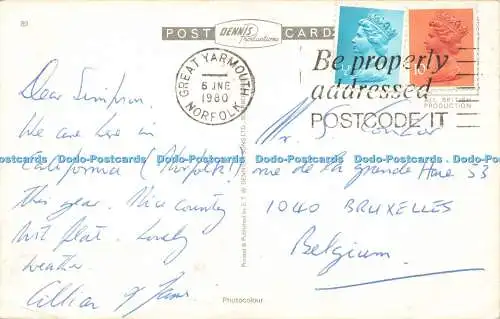 89
POST CARD
DENNIS
Productions
GREAT YARMOUTH
6 JNE
1980
NORFOLK
Be properly
addressed
POSTCODE IT
ALL BRITISH
PRODUCTION
10
Dear Simpson,
We are here in
California (Norfolk!)
this year. Nice country
but flat. Lovely
weather.
Gillian & James
Mr. S.
rue de la grande Haie 53
1040 BRUXELLES
Belgium
Printed & Published by E. T. W. DENNIS
Photocolour
Dodo-Postcards Dodo-Postcards Dodo-Postcards Dodo-Postcards Dodo-Postcards